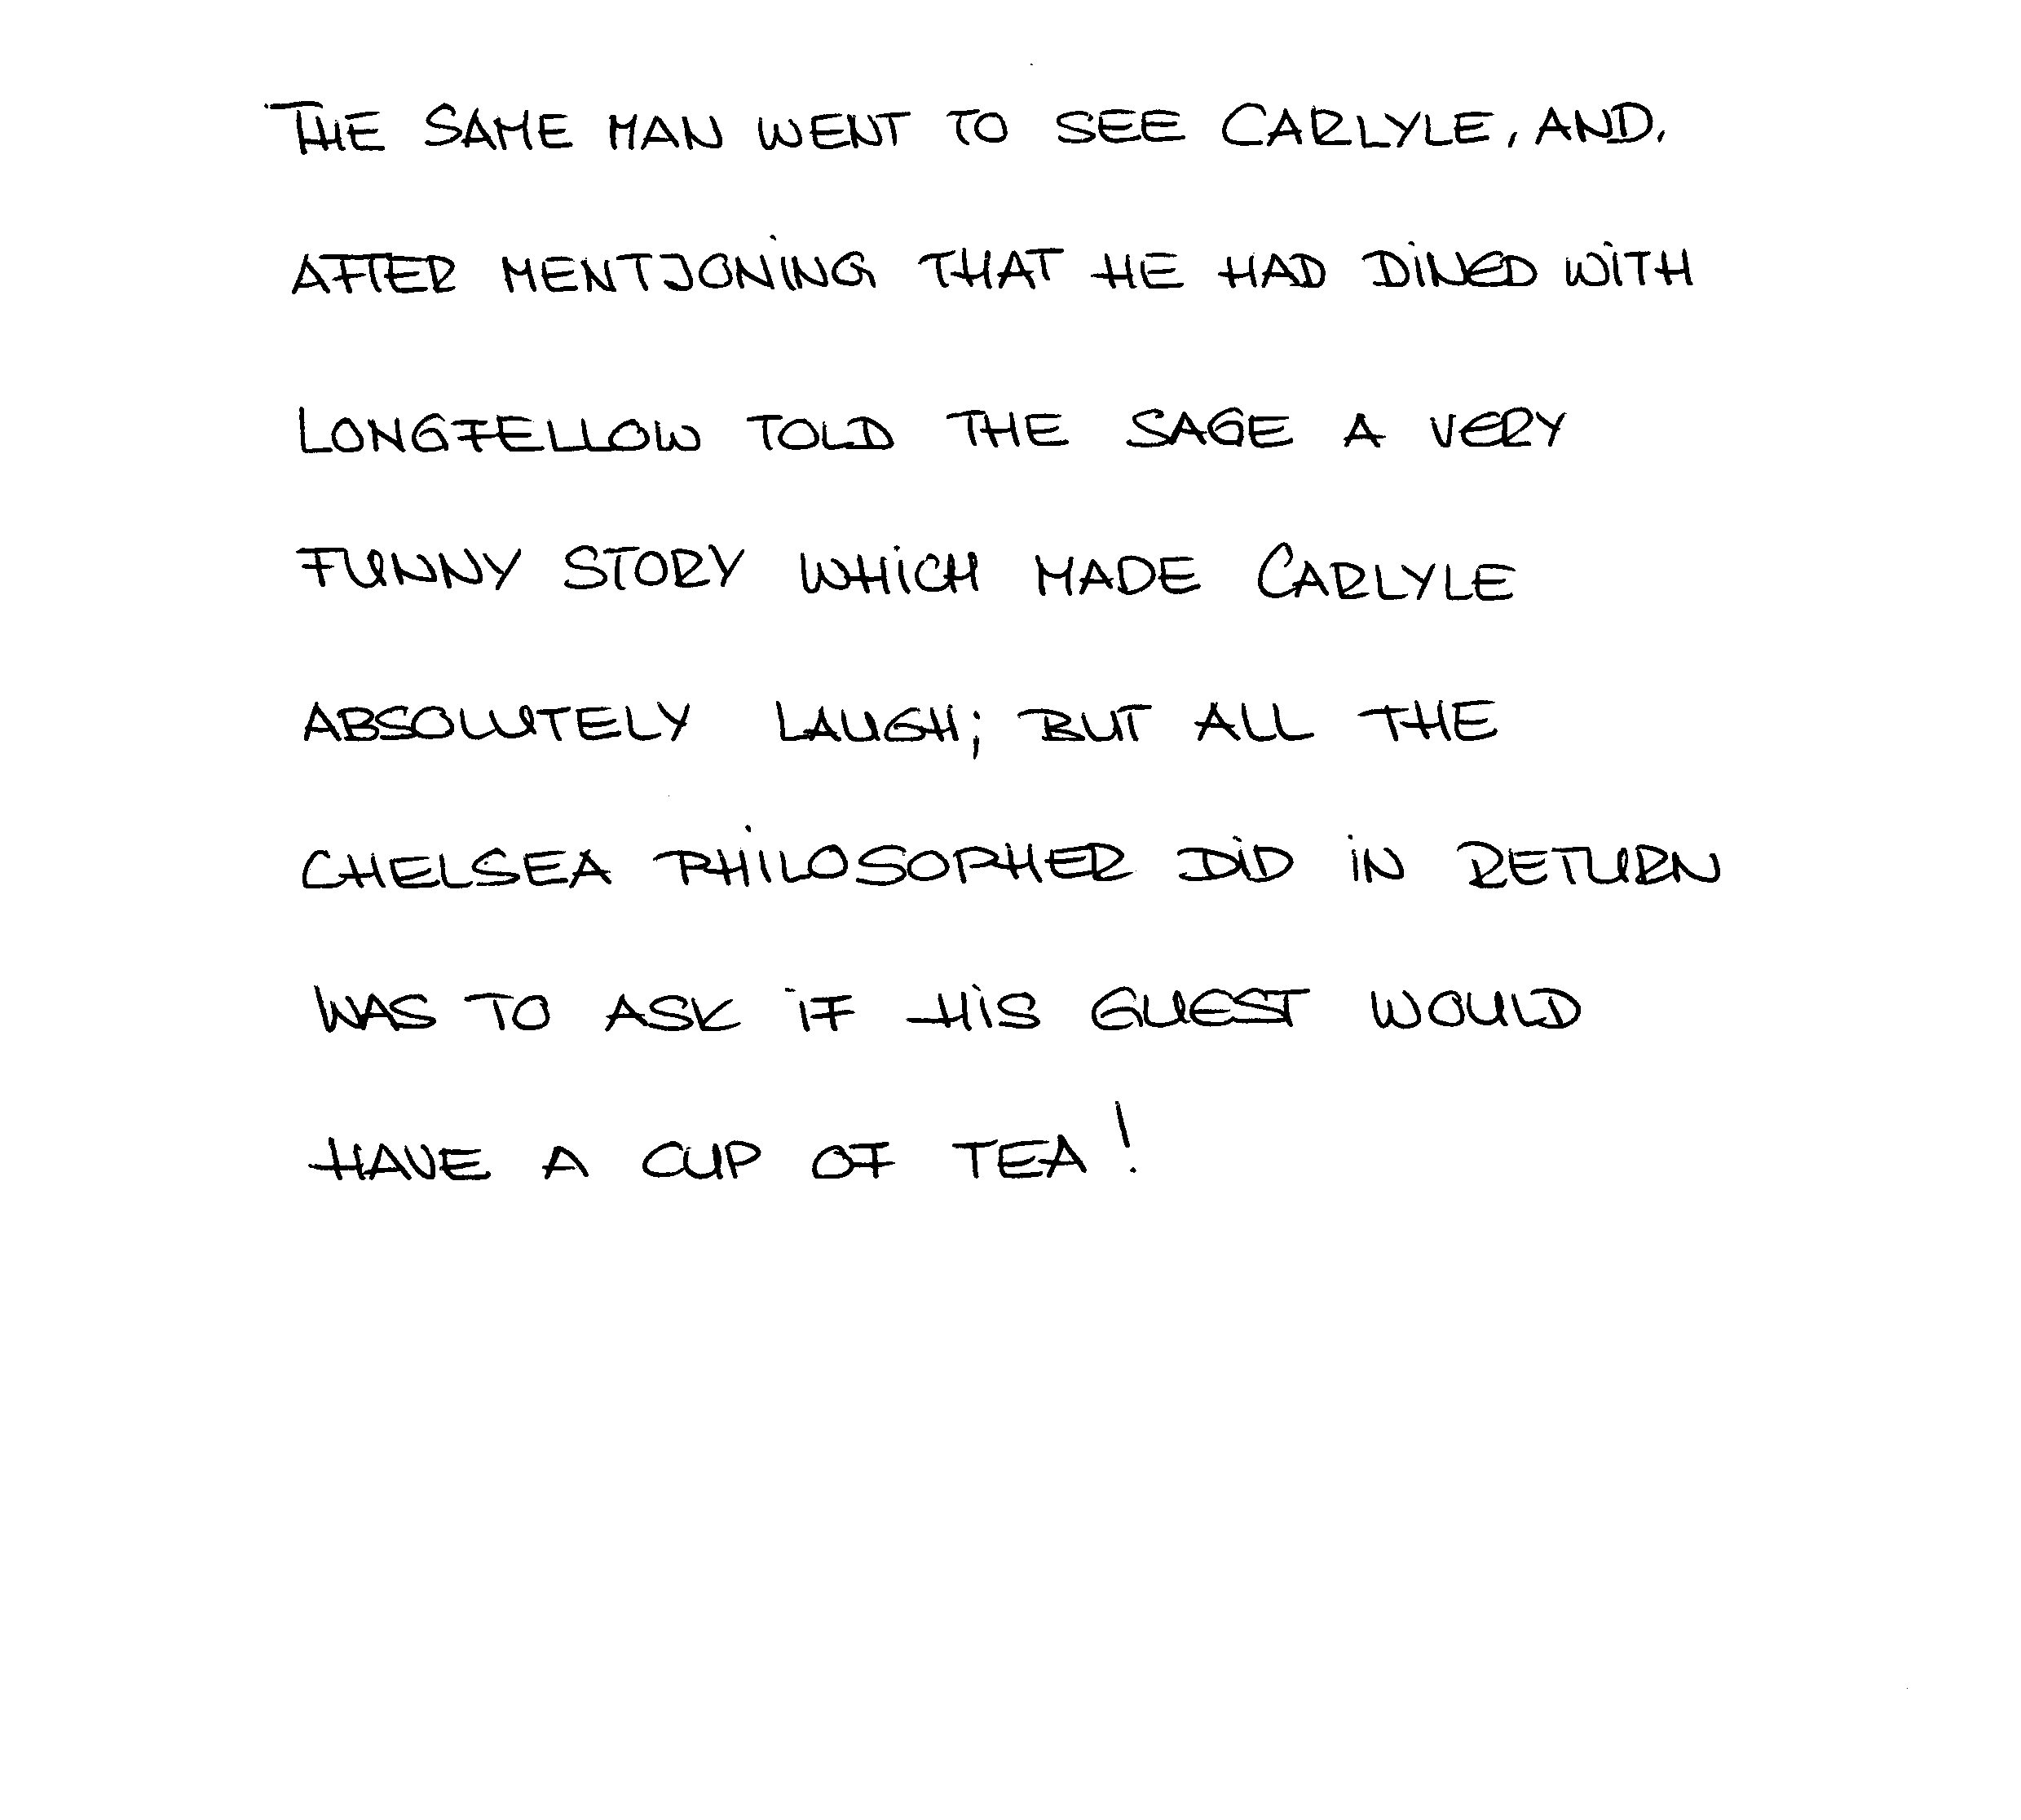 THE SAME MAN WENT TO SEE CARLYLE, AND,
AFTER MENTIONING THAT HE HAD DINED WITH
LONGFELLOW TOLD THE SAGE A VERY
FUNNY STORY WHICH MADE CARLYLE
ABSOLUTELY LAUGH; BUT ALL THE
CHELSEA PHILOSOPHER DID IN RETURN
WAS TO ASK IF HIS GUEST WOULD
HAVE A CUP OF TEA!